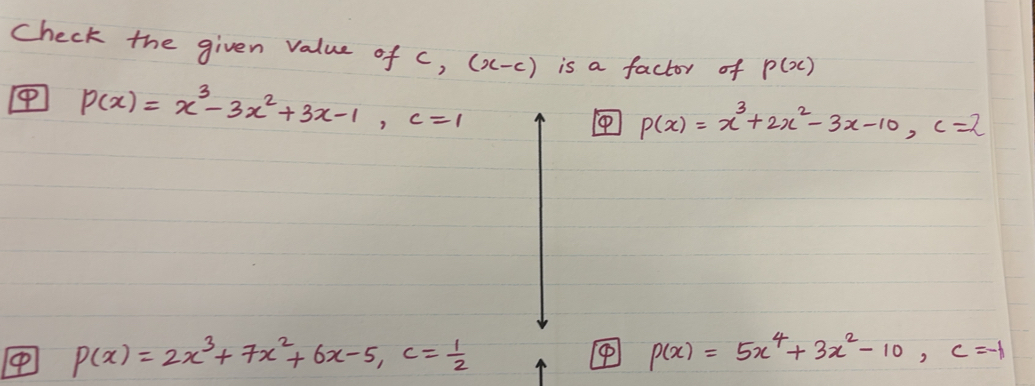 Check the given value of c, (x-c) is a factor of p(x)
φ p(x) = x³-3x²+3x-1 , c=1
φ p(x) = x³+2x²-3x-10, c=2
φ p(x) = 2x³+7x²+6x-5, c=1/2
φ p(x) = 5x⁴+3x²-10 , c=-1